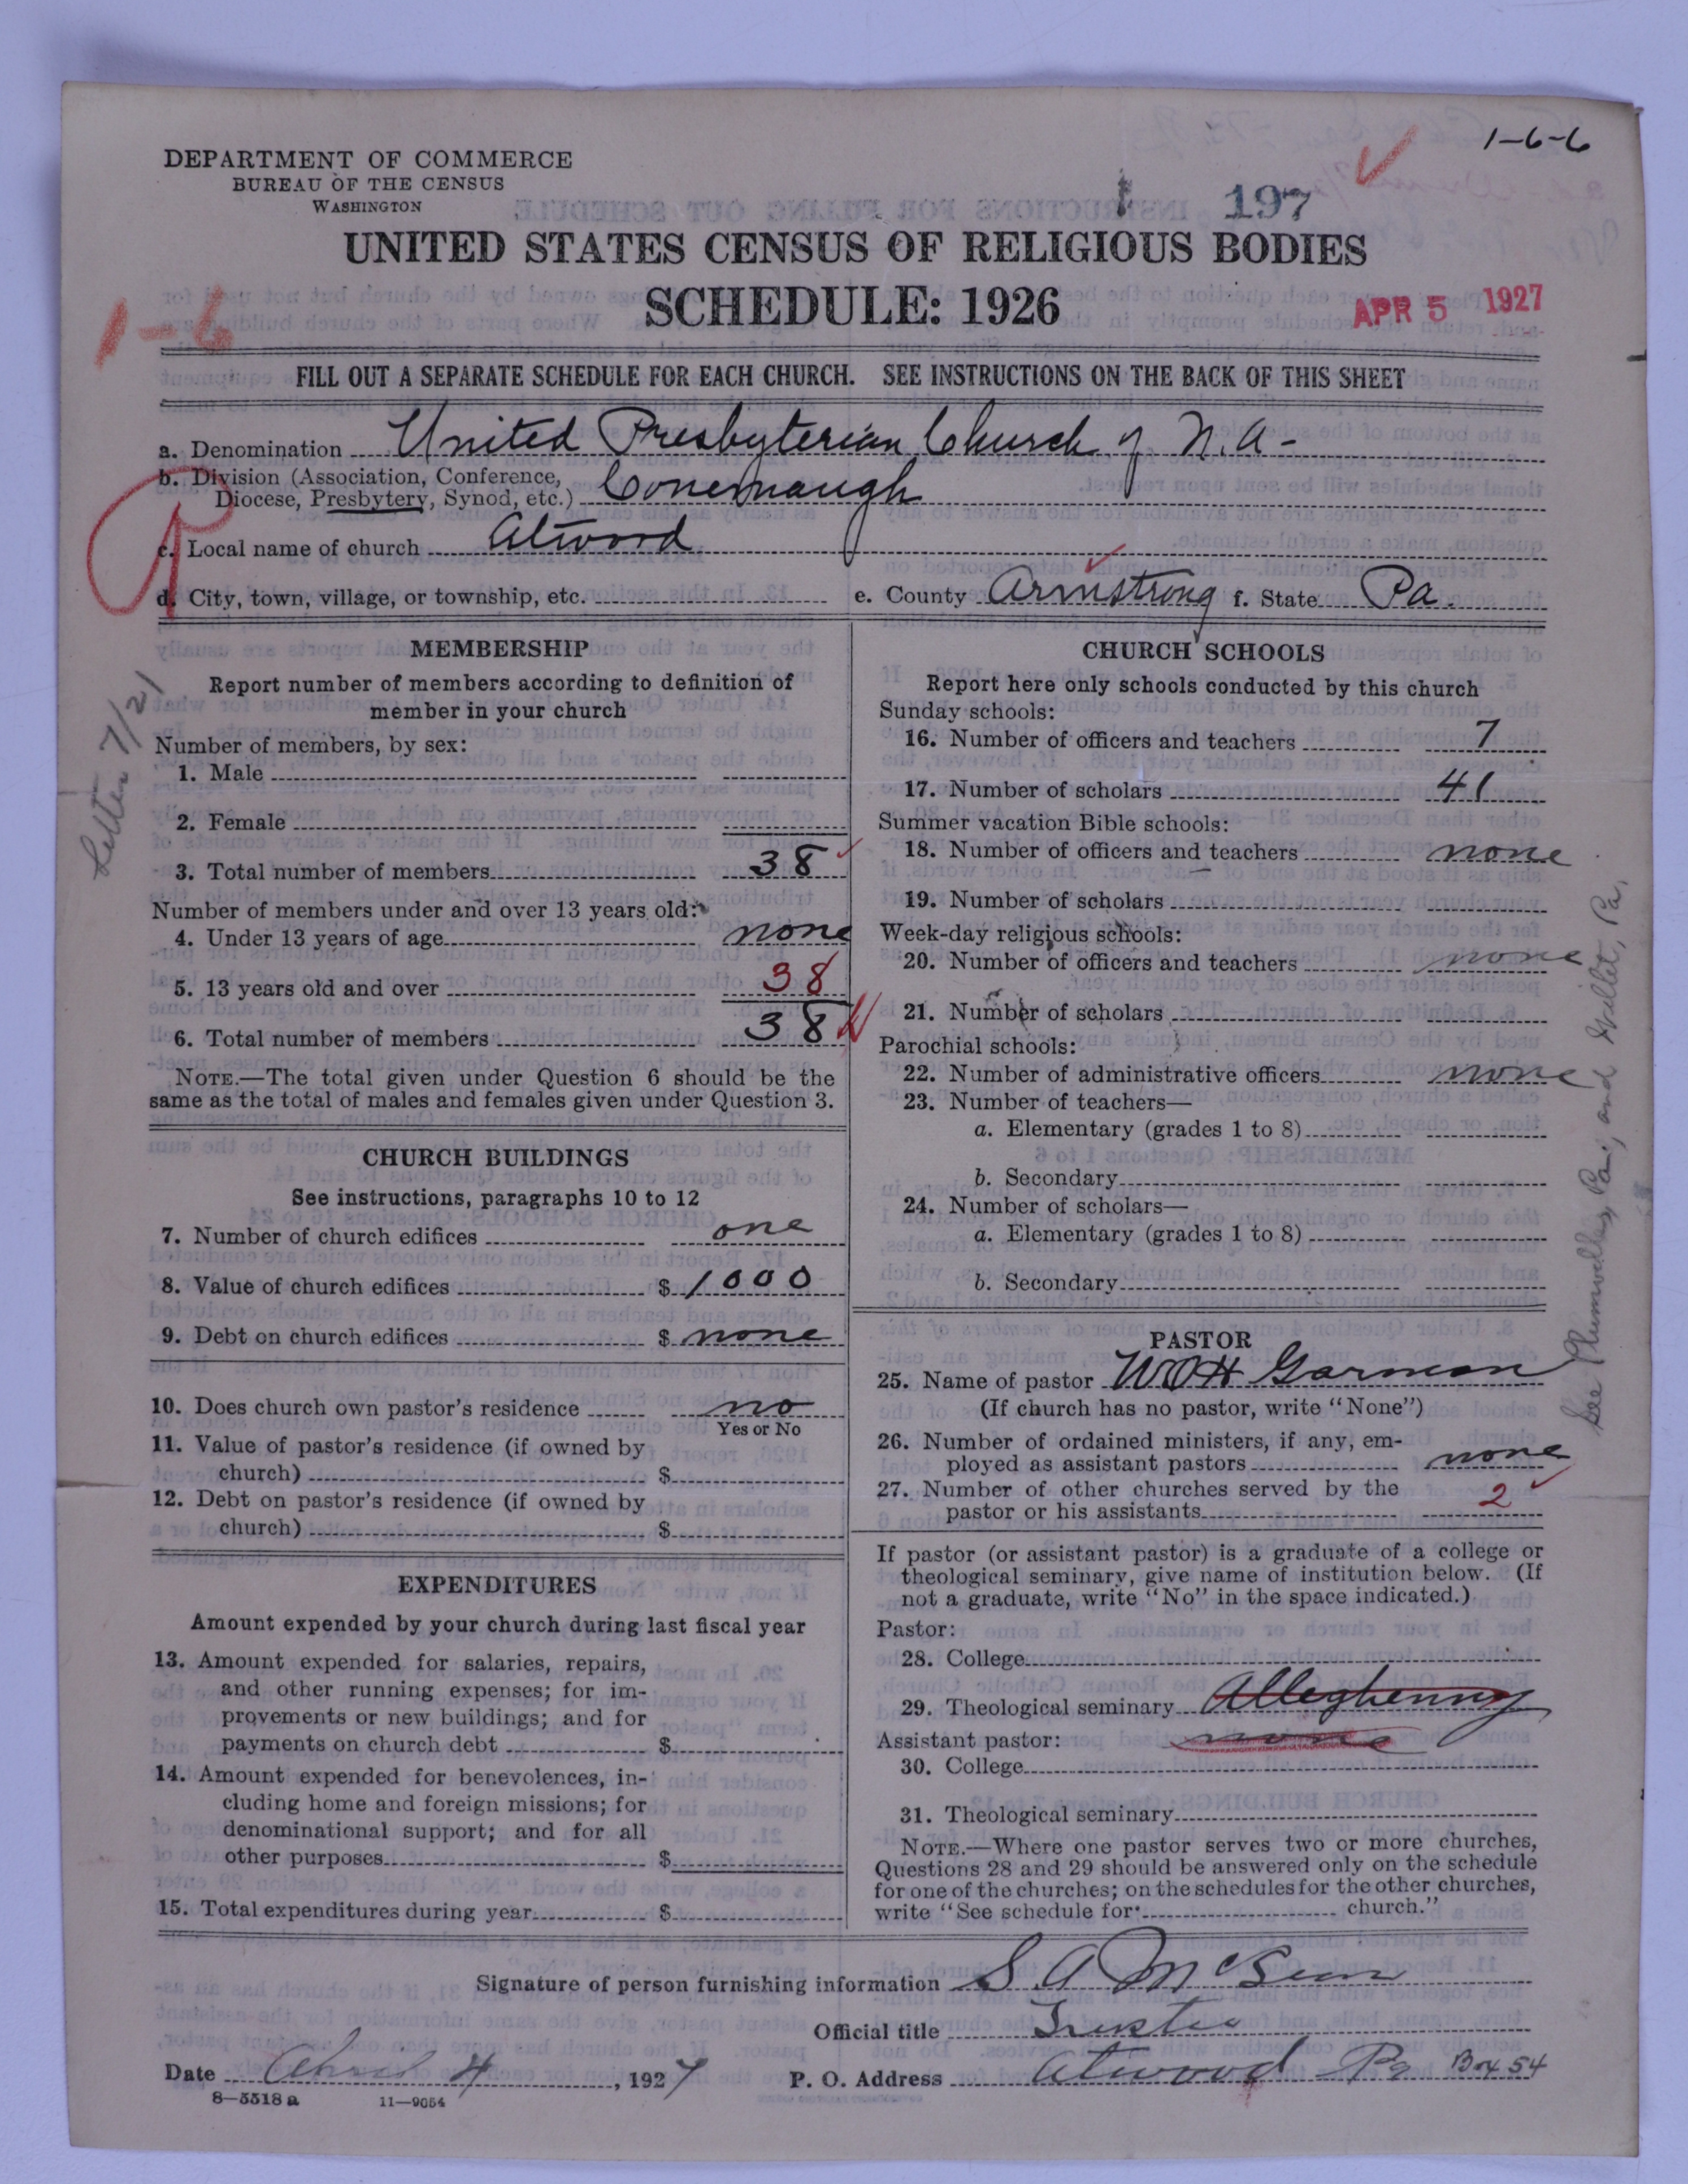 1-6-6
DEPARTMENT OF COMMERCE
BUREAU OF THE CENSUS
WASHINGTON
1 197
UNITED STATES CENSUS OF RELIGIOUS BODIES
SCHEDULE: 1926
APR 5 1927
1-6
FILL OUT A SEPARATE SCHEDULE FOR EACH CHURCH. SEE INSTRUCTIONS ON THE BACK OF THIS SHEET
a. Denomination United Presbyterian Church of N.A-
b. Division (Association, Conference,
Diocese, Presbytery, Synod, etc.) Conemaugh
c. Local name of church Atwood
d. City, town, village, or township, etc. e. County Armstrong f. State Pa.
Letter 7/21
MEMBERSHIP
Report number of members according to definition of
member in your church
Number of members, by sex:
1. Male
2. Female
3. Total number of members 38
Number of members under and over 13 years old:
4. Under 13 years of age none
5. 13 years old and over 38
6. Total number of members 38
NOTE.—The total given under Question 6 should be the
same as the total of males and females given under Question 3.
CHURCH BUILDINGS
See instructions, paragraphs 10 to 12
7. Number of church edifices one
8. Value of church edifices $ 1000
9. Debt on church edifices $ none
10. Does church own pastor's residence no
Yes or No
11. Value of pastor's residence (if owned by
church) $
12. Debt on pastor's residence (if owned by
church) $
EXPENDITURES
Amount expended by your church during last fiscal year
13. Amount expended for salaries, repairs,
and other running expenses; for im-
provements or new buildings; and for
payments on church debt $
14. Amount expended for benevolences, in-
cluding home and foreign missions; for
denominational support; and for all
other purposes $
15. Total expenditures during year $
CHURCH SCHOOLS
Report here only schools conducted by this church
Sunday schools:
16. Number of officers and teachers 7
17. Number of scholars 41
Summer vacation Bible schools:
18. Number of officers and teachers none
19. Number of scholars
Week-day religious schools:
20. Number of officers and teachers none
21. Number of scholars
Parochial schools:
22. Number of administrative officers none
23. Number of teachers—
a. Elementary (grades 1 to 8)
b. Secondary
24. Number of scholars—
a. Elementary (grades 1 to 8)
b. Secondary
PASTOR
25. Name of pastor WOH Garman
(If church has no pastor, write "None")
26. Number of ordained ministers, if any, em-
ployed as assistant pastors none
27. Number of other churches served by the
pastor or his assistants 2
If pastor (or assistant pastor) is a graduate of a college or
theological seminary, give name of institution below. (If
not a graduate, write "No" in the space indicated.)
Pastor:
28. College
29. Theological seminary Alleghenny
Assistant pastor: none
30. College
31. Theological seminary
NOTE.—Where one pastor serves two or more churches,
Questions 28 and 29 should be answered only on the schedule
for one of the churches; on the schedules for the other churches,
write "See schedule for church."
See Plumville, Pa., and Pa.
Signature of person furnishing information S A
Official title Trustee
Date April 4, 1927 P. O. Address Atwood Pa Box 54
8—5518 a 11—9054